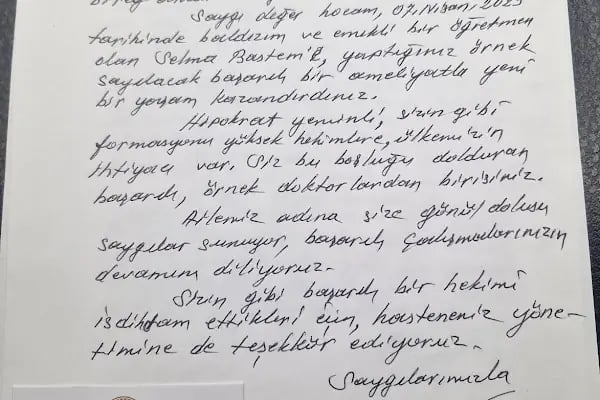 Saygı değer hocam, 07, Nisan, 2023
tarihinde baldızım ve emekli bir öğretmen
olan Selma Bastem'i, yaptığınız örnek
sayılacak başarılı bir ameliyatla yeni
bir yaşam kazandırdınız.
Hipokrat yeminli, sizin gibi
formasyonu yüksek hekimlere, ülkemizin
ihtiyacı var. Siz bu boşluğu dolduran
başarılı, örnek doktorlardan birisiniz.
Ailemiz adına size gönül dolusu
saygılar sunuyor, başarılı çalışmalarınızın
devamını diliyoruz.
Sizin gibi başarılı bir hekimi
isdihdam ettikleri için, hasteneniz yöne-
timine de teşekkür ediyoruz.
Saygılarımızla